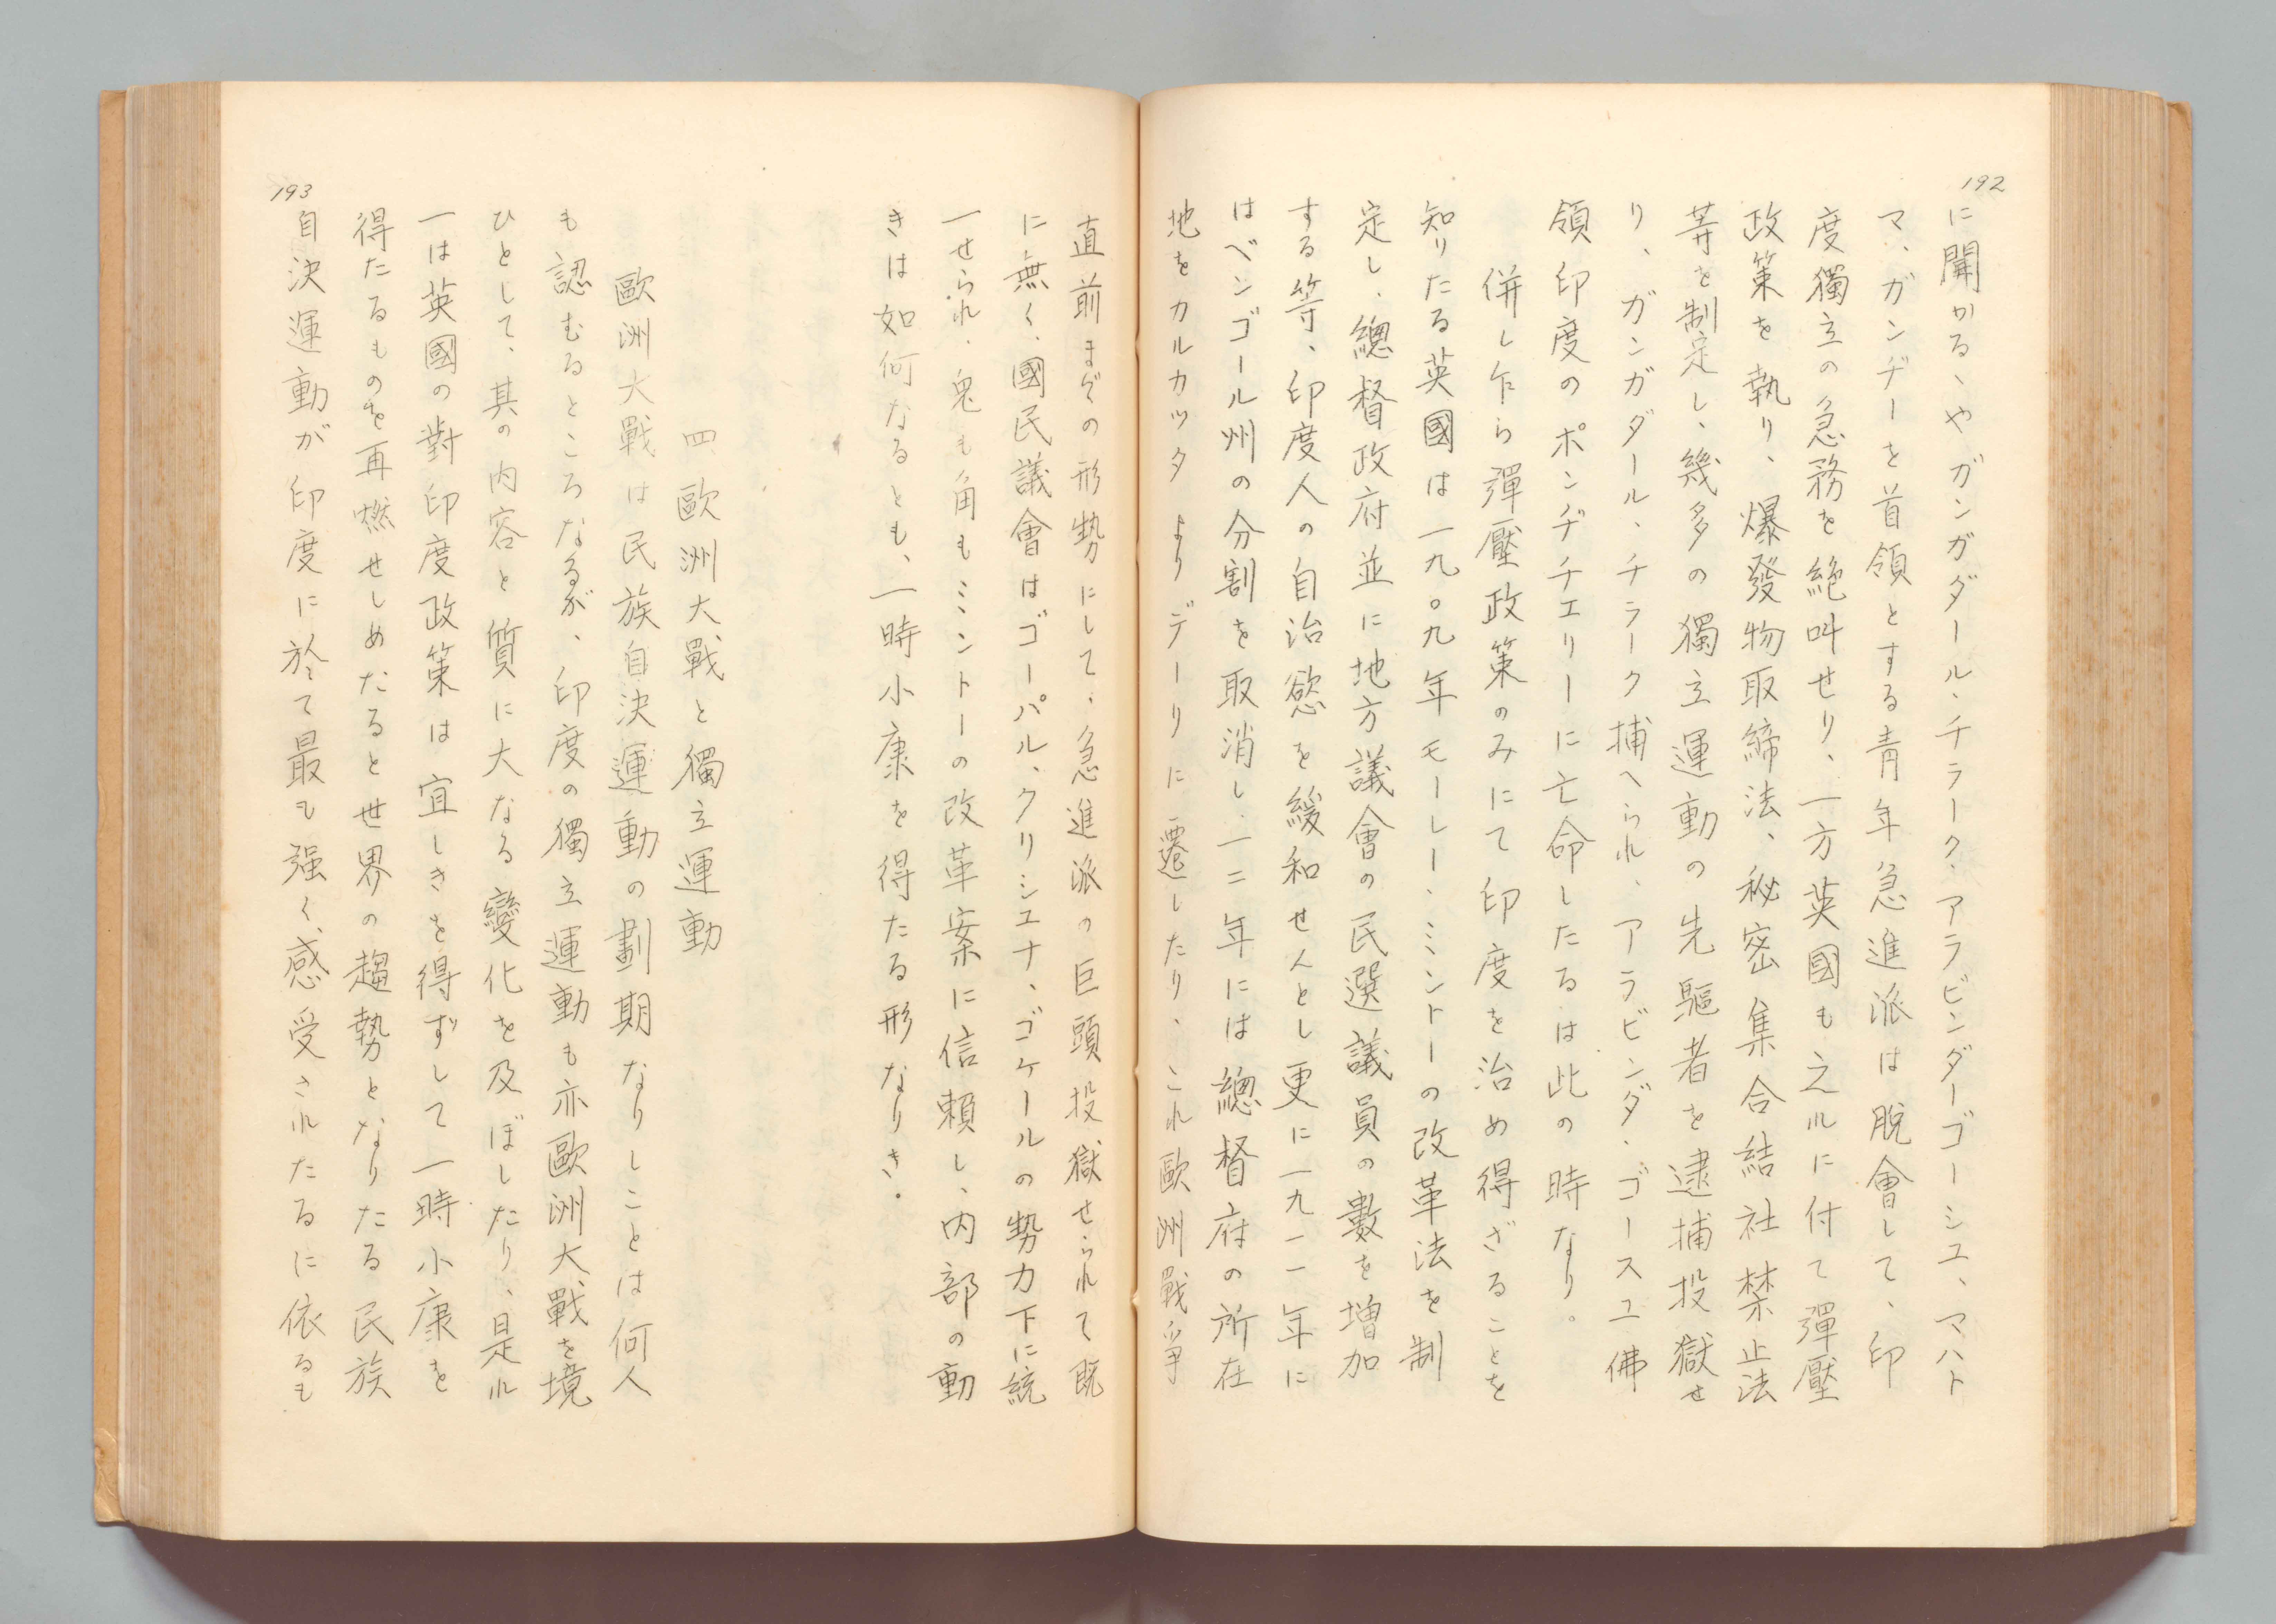 192
に開かるゝやガンガダール・チラーク・アラビンダーゴーシユ、マハト
マ、ガンヂーを首領とする青年急進派は脱會して、印
度獨立の急務を絶叫せり、一方英國も之れに付て彈壓
政策を執り、爆發物取締法、秘密集合結社禁止法
等を制定し、幾多の獨立運動の先驅者を逮捕投獄せ
り、ガンガダール・チラーク捕へられ、アラビンダ・ゴースユ佛
領印度のポンヂチエリーに亡命したるは此の時なり。
併し乍ら彈壓政策のみにて印度を治め得ざることを
知りたる英國は一九〇九年モーレー・ミントーの改革法を制
定し、總督政府並に地方議會の民選議員の數を増加
する等、印度人の自治慾を緩和せんとし更に一九一一年に
はベンゴール州の分割を取消し、一二年には總督府の所在
地をカルカツタよりデーリに遷したり、これ歐洲戰爭
直前までの形勢にして、急進派の巨頭投獄せられて既
に無く、國民議會はゴーパル、クリシユナ、ゴケールの勢力下に統
一せられ、鬼も角もミントーの改革案に信頼し、内部の動
きは如何なるとも、一時小康を得たる形なりき。
四 歐洲大戰と獨立運動
歐洲大戰は民族自決運動の劃期なりしことは何人
も認むるところなるが、印度の獨立運動も亦歐洲大戰を境
ひとして、其の内容と質に大なる變化を及ぼしたり、是れ
一は英國の對印度政策は宜しきを得ずして一時小康を
得たるものを再燃せしめたると世界の趨勢となりたる民族
193
自決運動が印度に於て最も强く感受されたるに依るも